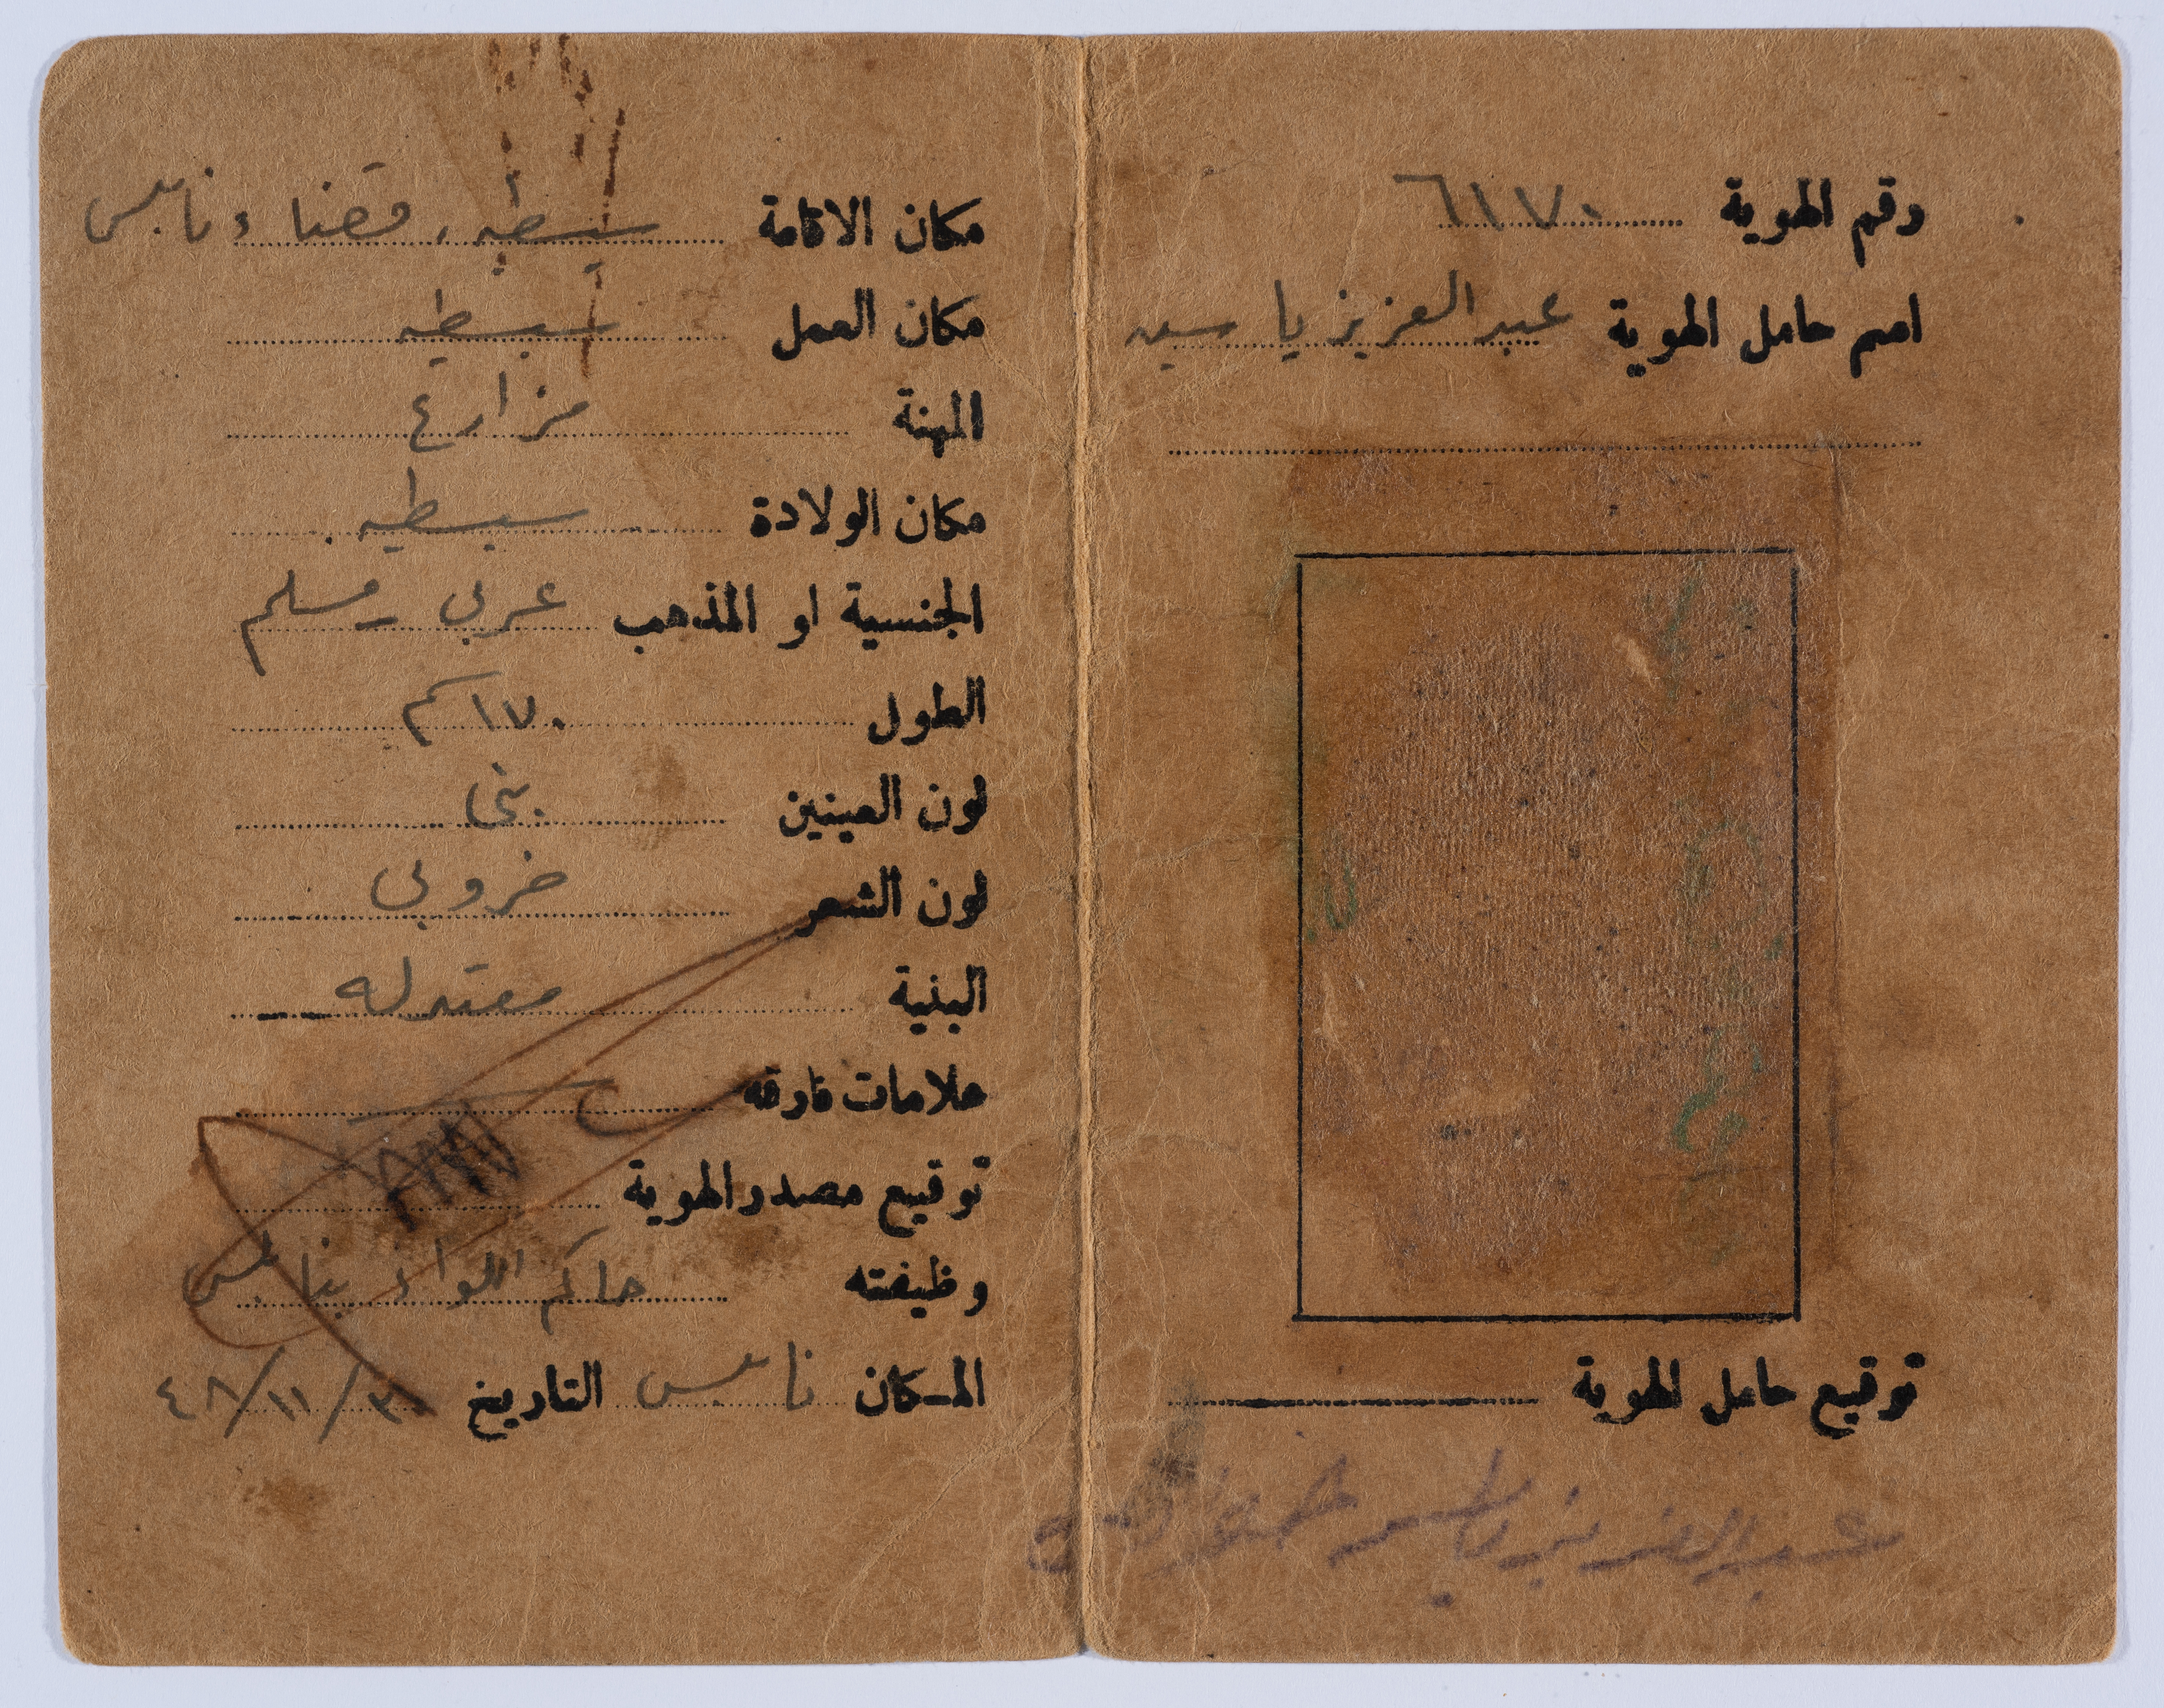 رقم الهوية ٦١٧٠
اسم حامل الهوية عبد العزيز ياسين
توقيع حامل الهوية
عبد العزيز ياسين
مكان الاقامة سبسطيه، قضاء نابلس
مكان العمل سبسطيه
المهنة مزارع
مكان الولادة سبسطيه.
الجنسية او المذهب عربي - مسلم
الطول ١٧٠ كم
لون العينين بني
لون الشعر خروبي
البنية معتدله
علامات فارقه
توقيع مصدر الهوية
وظيفته حاكم اللواء بنابلس
المكان نابلس التاريخ ٣٠/١١/٤٨